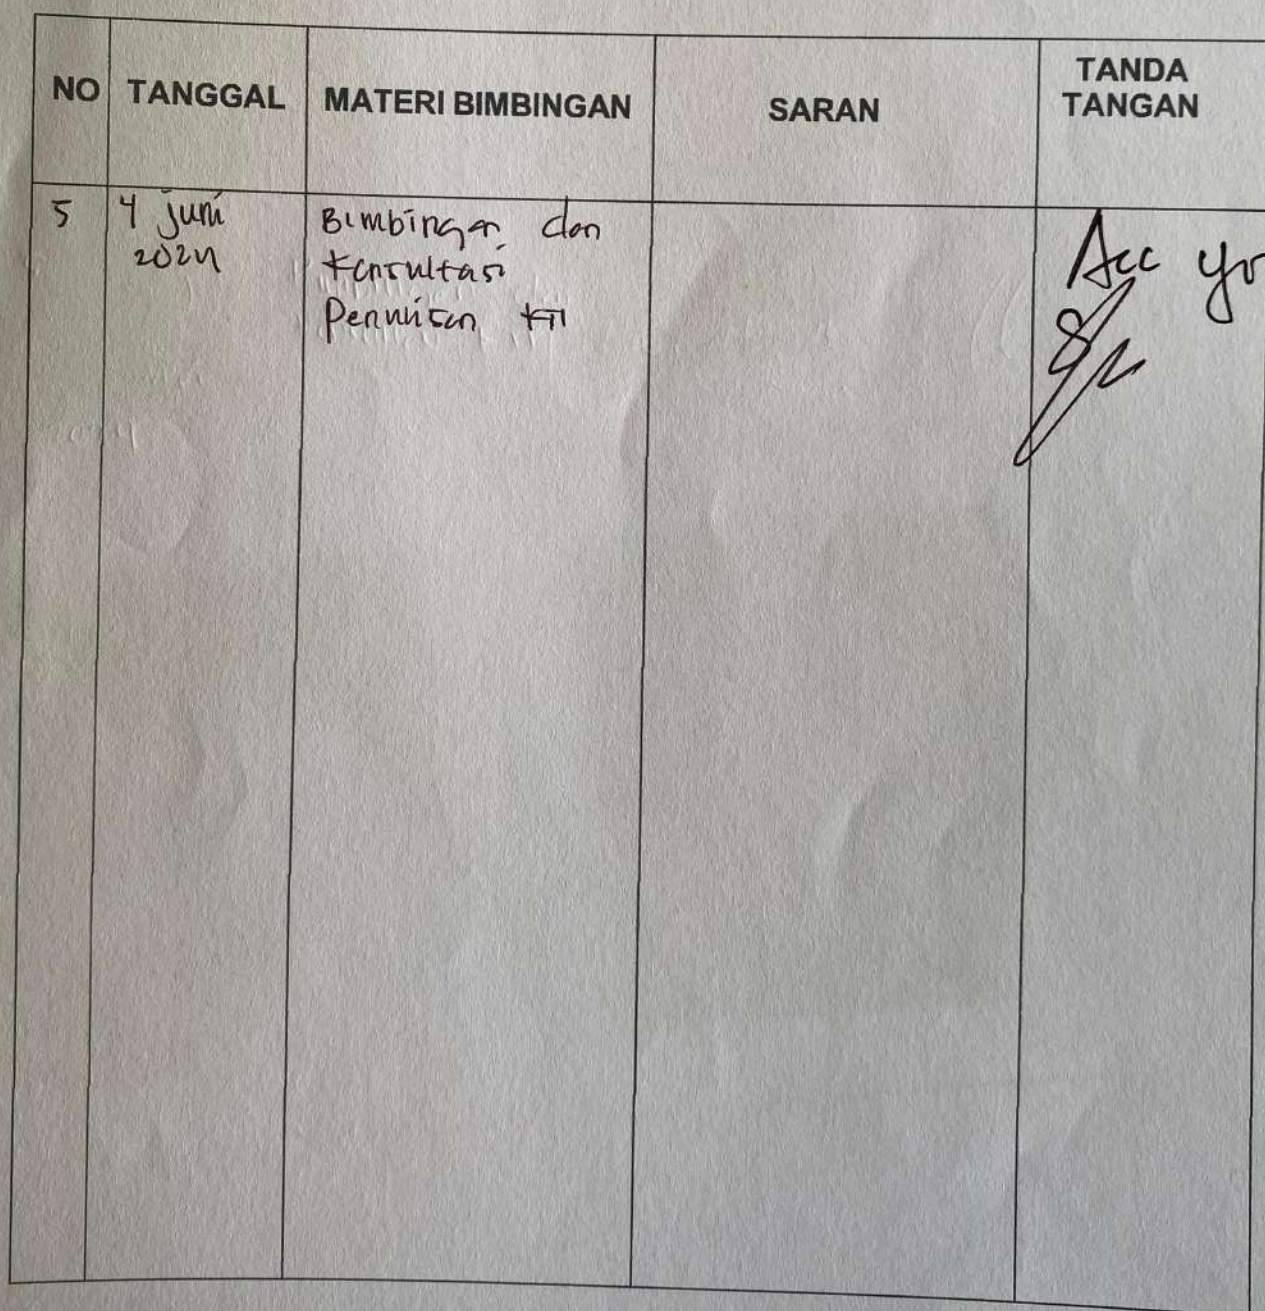 NO TANGGAL MATERI BIMBINGAN SARAN TANDA
TANGAN
5 4 juni Bimbingan dan Acc
2024 Konsultasi
Penulisan KTI